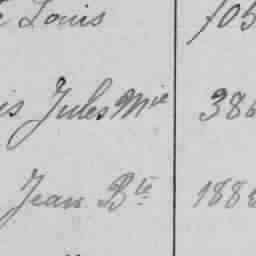 Louis 105
is Jules Mie 386
Jean Bte 1888